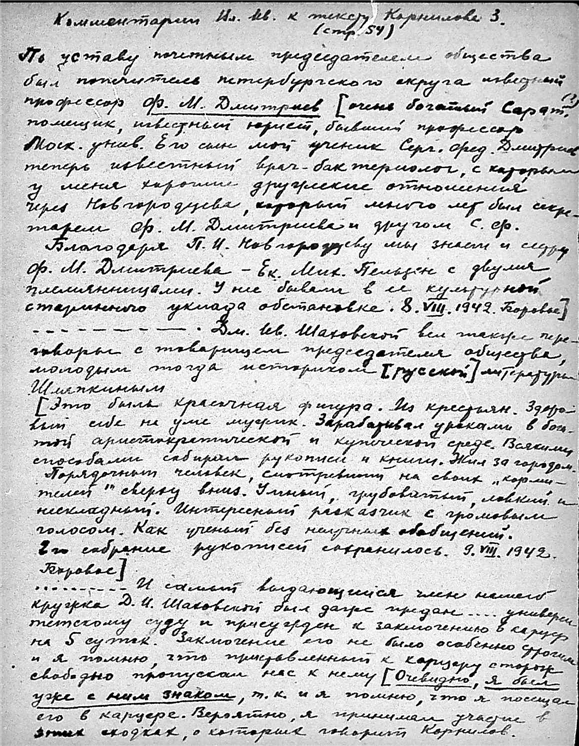 Комментарии Ил. Ив. к тексту Корнилова 3.
(стр. 54)
По уставу почетным председателем общества
был попечитель петербургского округа известный
профессор Ф. М. Дмитриев [очень богатый Сарат. (1)
помещик, известный юрист, бывший профессор
Моск. унив. Его сын мой ученик Серг. Фед. Дмитриев
теперь известный врач-бактериолог, с которым
у меня хорошие дружеские отношения
через Новгородцева, который много лет был секре-
тарем Ф. М. Дмитриева и другом С. Ф.
Благодаря П. И. Новгородцеву мы знаем и сестру
Ф. М. Дмитриева - Ек. Мих. с двумя
племянницами. У нее бывали в ее культурной
старинного уклада обстановке. 8. VIII. 1942. Боровое]
- - - - - - - - - Дм. Ив. Шаховской вел также пере-
говоры с товарищем председателя общества,
молодым тогда историком [русской] литературы
Шляпкиным
[Это была красочная фигура. Из крестьян. Здоро-
вый себе на уме мужик. Зарабатывал уроками в бога-
той аристократической и купеческой среде. Всякими
способами собирал рукописи и книги. Жил за городом.
Порядочный человек, смотревший на своих "корми-
телей" сверху вниз. Умный, грубоватый, ловкий и
нескладный. Интересный рассказчик с громовым
голосом. Как ученый без научных обобщений.
Его собрание рукописей сохранилось. 9. VIII. 1942.
Боровое]
......... И самый выдающийся член нашего
кружка Д. И. Шаховской был даже предан .... универси-
тетскому суду и присужден к заключению в карцер
на 5 суток. Заключение его не было особенно строгим
и я помню, что приставленный к карцеру сторож
свободно пропускал нас к нему [Очевидно, я был
уже с ним знаком, т.к. и я помню, что я посещал
его в карцере. Вероятно, я принимал участие в
этих сходках, о которых говорит Корнилов.